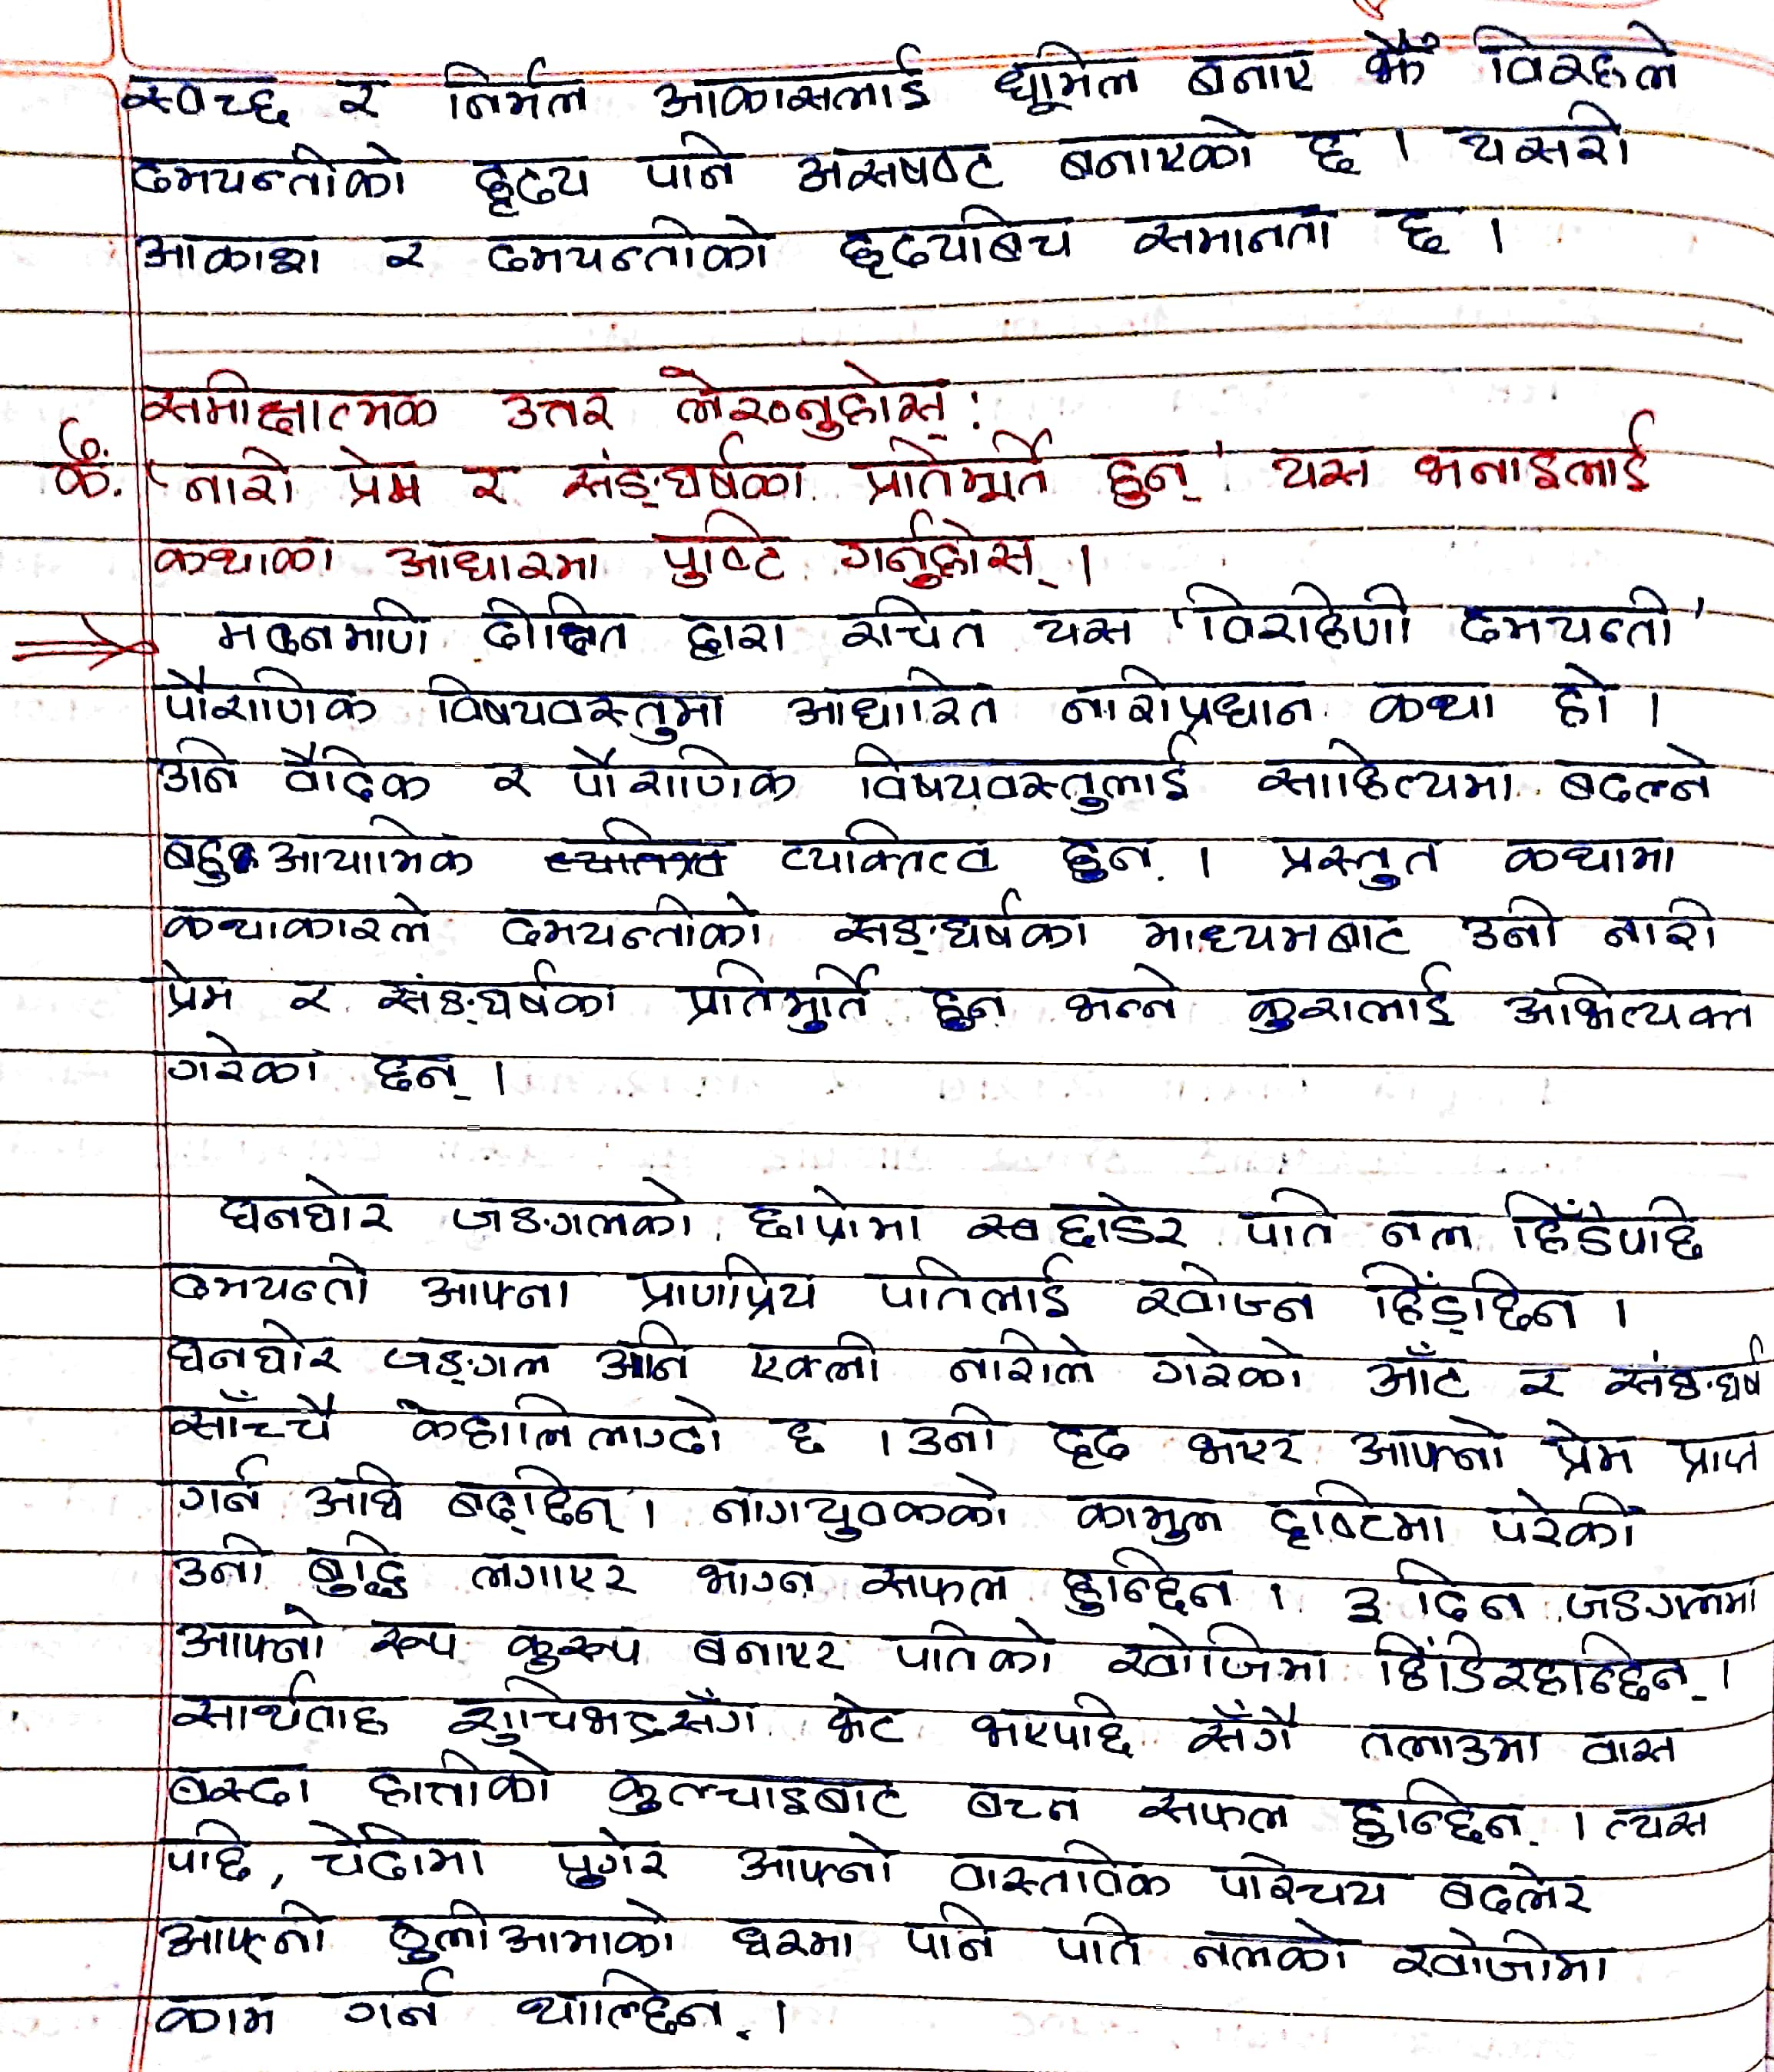 स्वच्छ र निर्मल आकासलाई धूमिल बनाए झैँ विरहले
दमयन्तीको हृदय पनि अस्पष्ट बनाएको छ । यसरी
आकाश र दमयन्तीको हृदयबिच समानता छ ।
समीक्षात्मक उत्तर लेख्नुहोस् :
क. 'नारी प्रेम र संङ्घर्षका प्रतिमूर्ति हुन्' यस भनाइलाई
कथाका आधारमा पुष्टि गर्नुहोस् ।
⇒ मदनमणि दीक्षित द्वारा रचित यस 'विरहिणी दमयन्ती'
पौराणिक विषयवस्तुमा आधारित नारीप्रधान कथा हो ।
उनि वैदिक र पौराणिक विषयवस्तुलाई साहित्यमा बदल्ने
बहुआयामिक व्यक्तित्व हुन् । प्रस्तुत कथामा
कथाकारले दमयन्तीको सङ्घर्षका माध्यमबाट उनी नारी
प्रेम र संङ्घर्षका प्रतिमुर्ति हुन भन्ने कुरालाई अभिव्यक्त
गरेका छन् ।
घनघोर जङ्गलको छाप्रोमा छाडेर पति नल हिँडेपछि
दमयन्ती आफ्ना प्राणप्रिय पतिलाई खोज्न हिँड्छिन ।
घनघोर जङ्गल अनि एक्ली नारीले गरेको आँट र संङ्घर्ष
साँच्चै कहालिलाग्दो छ । उनी दृढ भएर आफ्नो प्रेम प्राप्त
गर्न अघि बढ्छिन् । नागयुवकको कामुल दृष्टिमा परेकी
उनी बुद्धि लगाएर भाग्न सफल हुन्छिन । ३ दिन जङगलमा
आफ्नो रूप कुरूप बनाएर पतिको खोजिमा हिंडिरहन्छिन् ।
सार्थवाह शुचिभद्रसँग भेट भएपछि सँगै तलाउमा वास
बस्दा हात्तीको कुल्चाइबाट बच्न सफल हुन्छिन् । त्यस
पछि, चेदीमा पुगेर आफ्नो वास्तविक परिचय बदलेर
आफ्नी ठुलीआमाको घरमा पनि पति नलको खोजीमा
काम गर्न थाल्छिन् ।